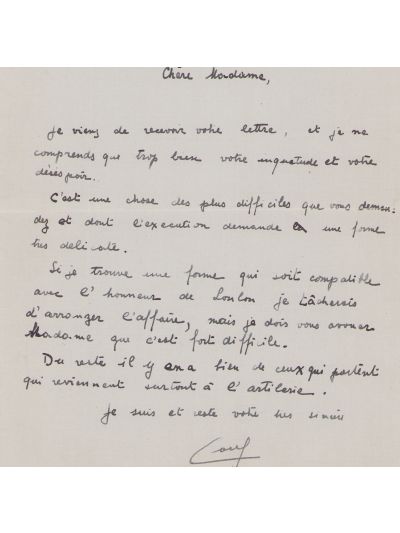 Chère Madame,
Je viens de recevoir votre lettre, et je ne
comprends que trop bien votre inquetude et votre
désespoir.
C'est une chose des plus difficiles que vous deman-
dez et dont l'execution demande une forme
tres delicate.
Si je trouve une forme qui soit compatible
avec l'honneur de Loulou je tâcherais
d'arranger l'affaire, mais je dois vous avouer
Madame que c'est fort difficile.
Du reste il y en a bien de ceux qui partent
qui reviennent surtout à l'artilerie.
Je suis et reste votre tres sincère